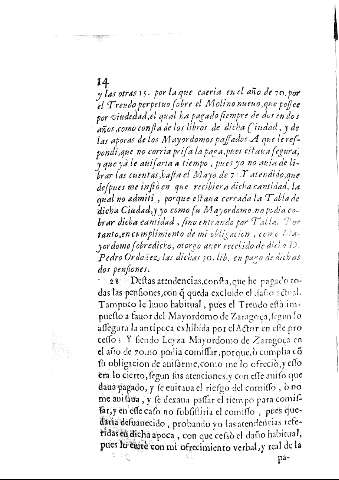 14
y las otras 15. por la que caeria en el año de 70. por
el Treudo perpetuo sobre el Molino nueuo, que possee
por Ciudedad, el qual ha pagado siempre de dos en dos
años, como consta de los libros de dicha Ciudad, y de
las apocas de los Mayordomos passados A que le res-
pondi, que no corria prisa la paga, pues estaua segura,
y que yà le auisaria a tiempo, pues yo no auia de li-
brar las cuentas, hasta el Mayo de 7 . Y atendido, que
despues me instò en que recibiera dicha cantidad, la
qual no admiti, porque estaua cerrada la Tabla de
dicha Ciudad, y yo como su Mayordomo no podia co-
brar dicha cantidad, sino entrando por Tabla. Por
tanto, en cumplimiento de mi obligacion, como Ma-
yordomo sobredicho, otorgo auer recebido de dicho D.
Pedro Ordoñez, las dichas 30. lib. en pago de dichos
dos pensiones.
28 Destas atendencias, consta, que he pagado to-
das las pensiones, con q̃ queda excluido el daño actual.
Tampoco le huuo habitual, pues el Treudo està im-
puesto a fauor del Mayordomo de Zaragoça, segun lo
assegura la antipoca exhibida por el Actor en este pro
cesso: Y siendo Leyza Mayordomo de Zaragoça en
el año de 70. no podia comissar, porque, ò cumplia cõ
su obligacion de auisarme, como me lo ofreciò, y esso
era lo cierto, segun sus atenciones, y con este auiso que
daua pagado, y se euitaua el riesgo del comisso, ò no
me auisaua, y se dexaua passar el tiempo para comis-
sar, y en esse caso no subsistiria el comisso, pues que-
daria desuanecido, prouando yo las atendencias refe-
ridas en dicha apoca, con que cessò el daño habitual,
pues lo euitè con mi ofrecimiento verbal, y real de la
pa-